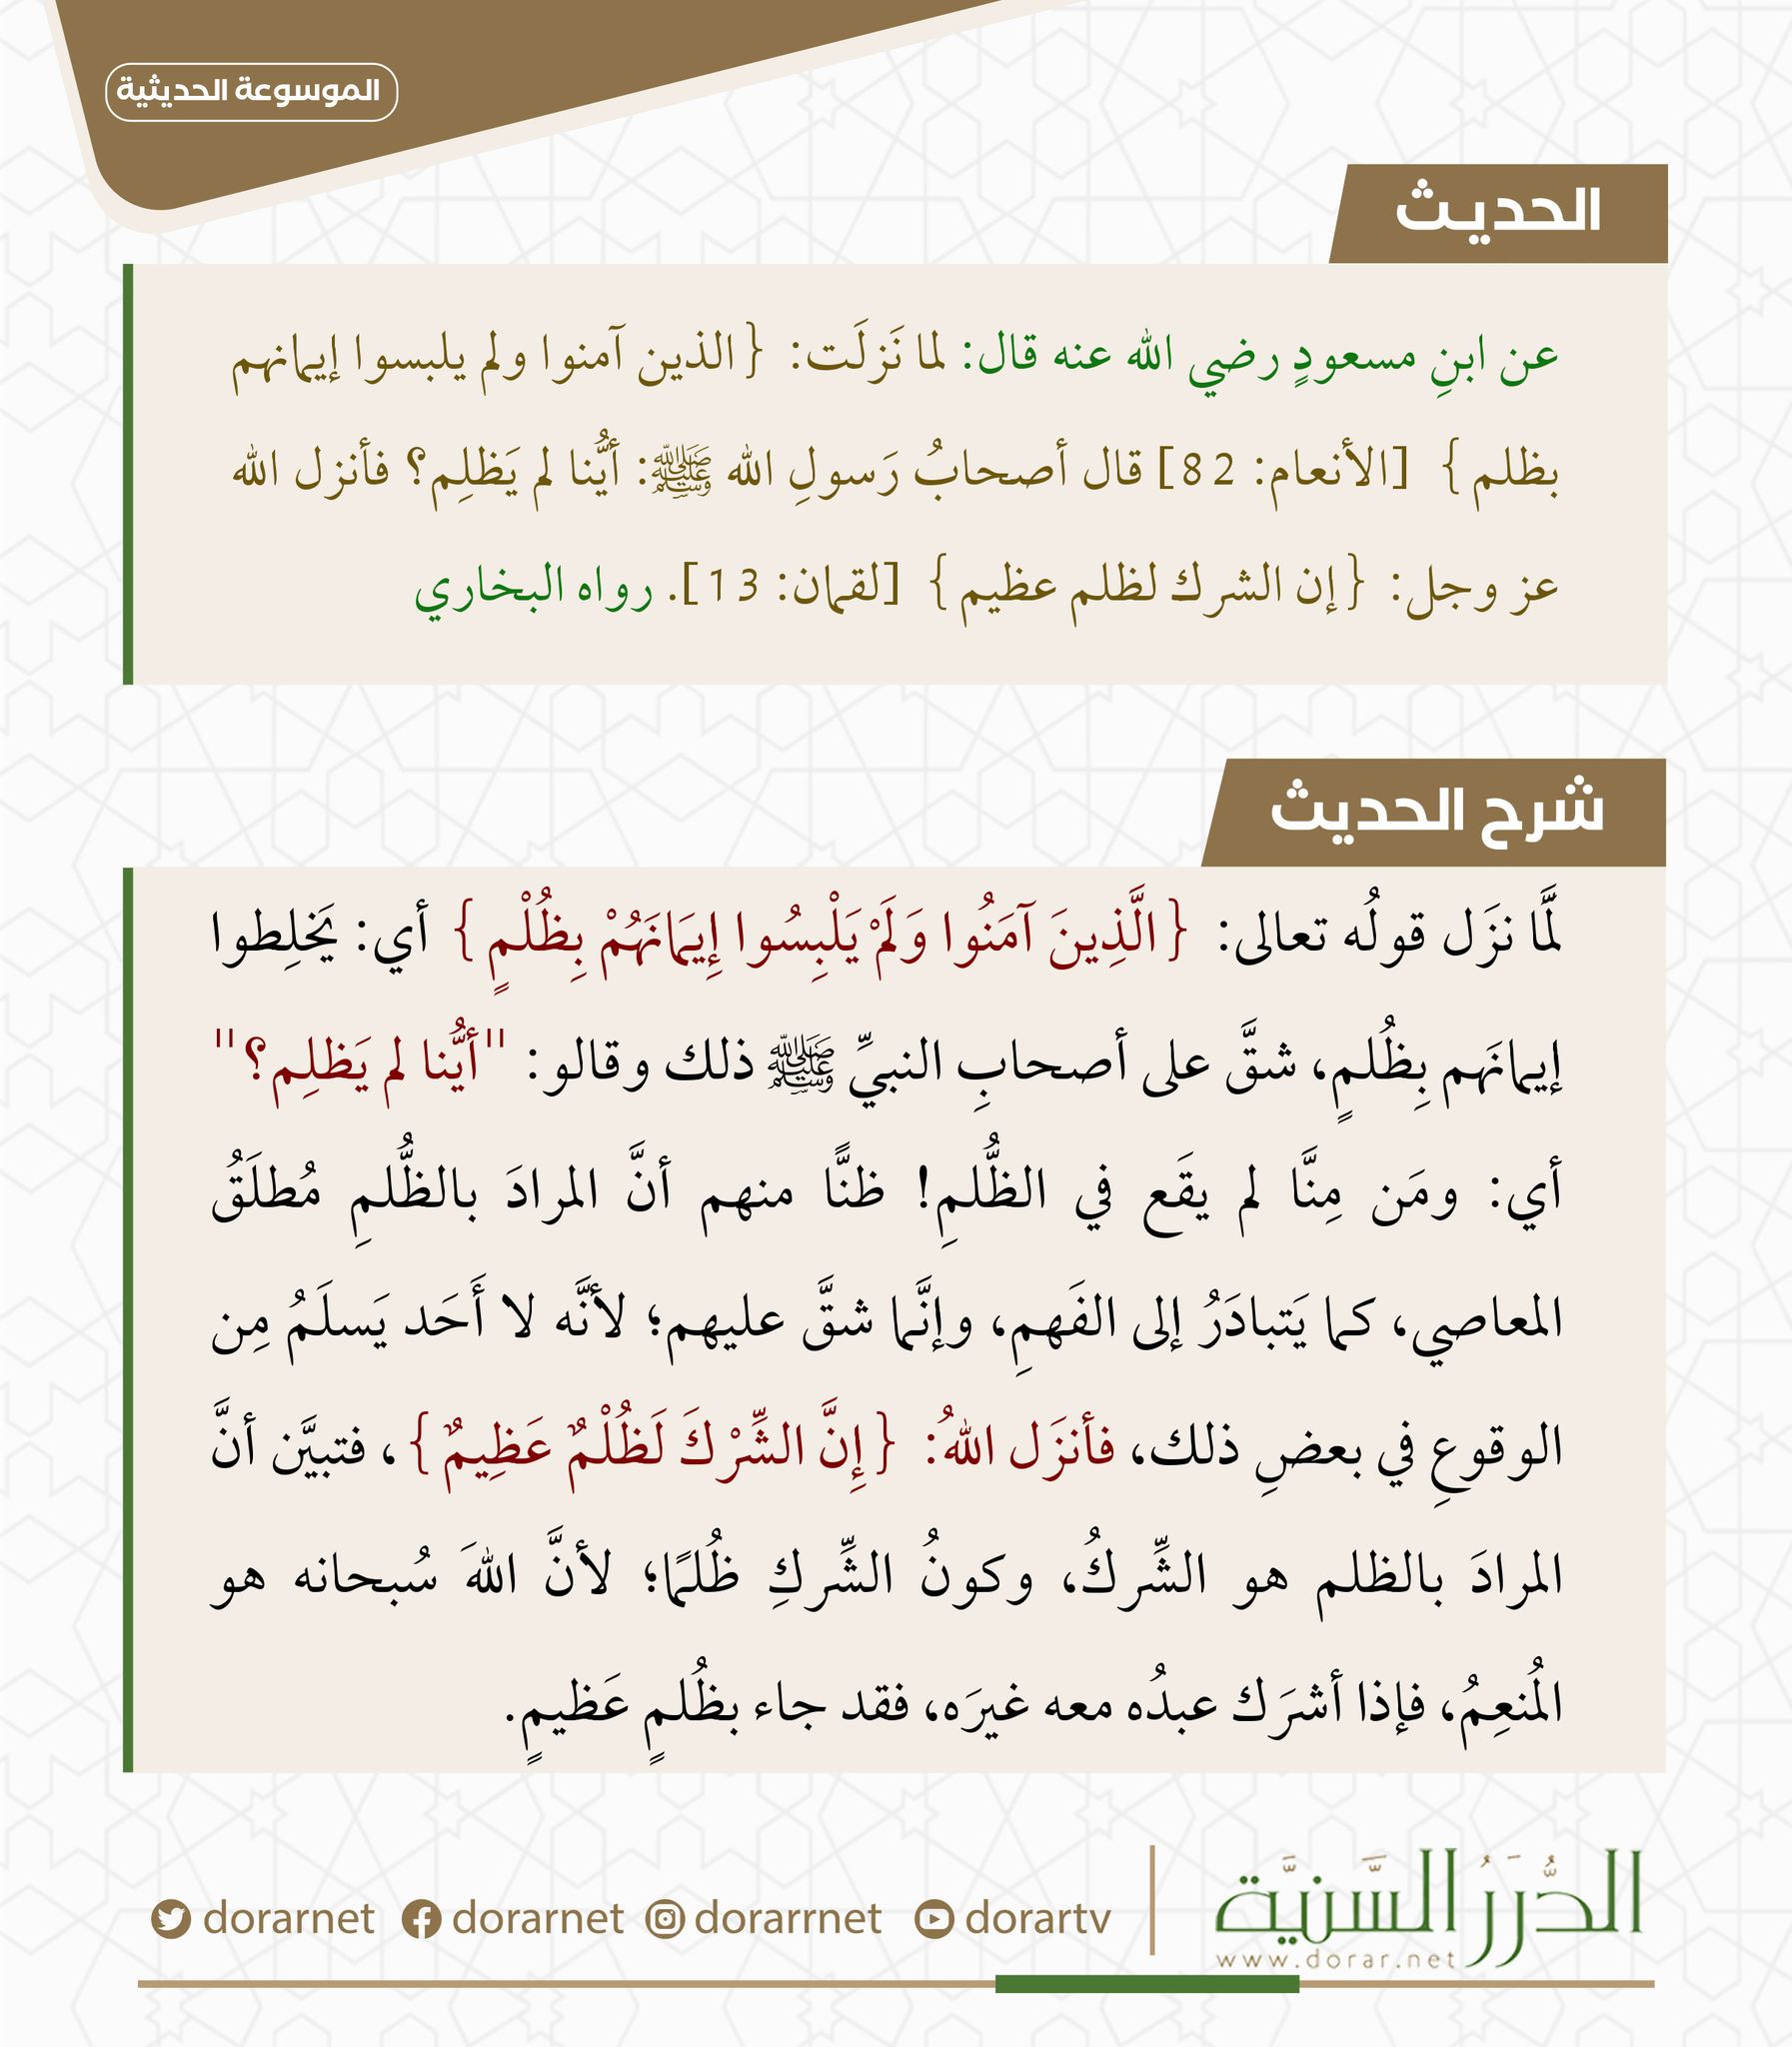 الموسوعة الحديثية
الحديث
عن ابنِ مسعودٍ رضي الله عنه قال: لما نَزلَت: {الذين آمنوا ولم يلبسوا إيمانهم
بظلم} [الأنعام: 82] قال أصحابُ رَسولِ الله ﷺ: أيُّنا لم يَظلِم؟ فأنزل الله
عز وجل: {إن الشرك لظلم عظيم} [لقمان: 13]. رواه البخاري
شرح الحديث
لمَّا نزَل قولُه تعالى: {الَّذِينَ آمَنُوا وَلَمْ يَلْبِسُوا إِيمَانَهُمْ بِظُلْمٍ} أي: يَخلِطوا
إيمانَهم بِظُلمٍ، شقَّ على أصحابِ النبيِّ ﷺ ذلك وقالو: "أيُّنا لم يَظلِم؟"
أي: ومَن مِنَّا لم يقَع في الظُّلمِ! ظنًّا منهم أنَّ المرادَ بالظُّلمِ مُطلَقُ
المعاصي، كما يَتبادَرُ إلى الفَهمِ، وإنَّما شقَّ عليهم؛ لأنَّه لا أَحَد يَسلَمُ مِن
الوقوعِ في بعضِ ذلك، فأنزَل اللهُ: {إِنَّ الشِّرْكَ لَظُلْمٌ عَظِيمٌ}، فتبيَّن أنَّ
المرادَ بالظلم هو الشِّركُ، وكونُ الشِّركِ ظُلمًا؛ لأنَّ اللهَ سُبحانه هو
المُنعِمُ، فإذا أشرَك عبدُه معه غيرَه، فقد جاء بظُلمٍ عَظيمٍ.
الدُّرَرُ السَّنيَّة
www.dorar.net
dorarnet dorarnet dorarrnet dorartv